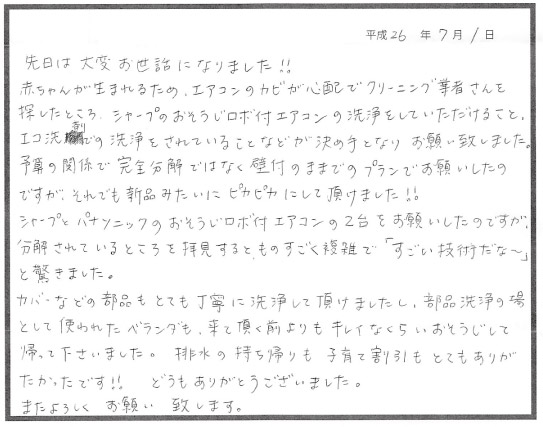 平成26年7月1日
先日は大変お世話になりました!!
赤ちゃんが生まれるため、エアコンのカビが心配でクリーニング業者さんを
探したところ、シャープのおそうじロボ付エアコンの洗浄をしていただけること、
エコ洗剤での洗浄をされていることなどが決め手となりお願い致しました。
予算の関係で完全分解ではなく壁付のままでのプランでお願いしたの
ですが、それでも新品みたいにピカピカにして頂けました!!
シャープとパナソニックのおそうじロボ付エアコンの2台をお願いしたのですが、
分解されているところを拝見すると、ものすごく複雑で「すごい技術だな〜」
と驚きました。
カバーなどの部品もとても丁寧に洗浄して頂けましたし、部品洗浄の場
として使われたベランダも、来て頂く前よりもキレイなくらいおそうじして
帰って下さいました。排水の持ち帰りも子育て割引もとてもありが
たかったです!! どうもありがとうございました。
またよろしくお願い致します。